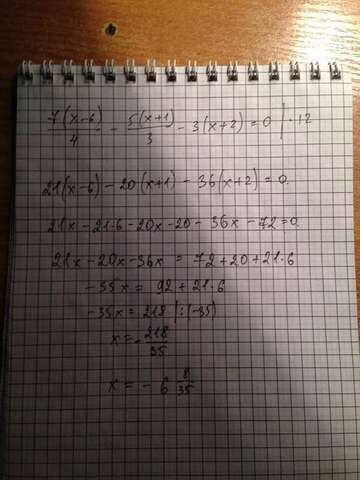 7(x-6)/4 - 5(x+1)/3 - 3(x+2) = 0 | ·12
21(x-6) - 20(x+1) - 36(x+2) = 0
21x - 21·6 - 20x - 20 - 36x - 72 = 0
21x - 20x - 36x = 72 + 20 + 21·6
-35x = 92 + 21·6
-35x = 218 | :(-35)
x = - 218/35
x = - 6 8/35